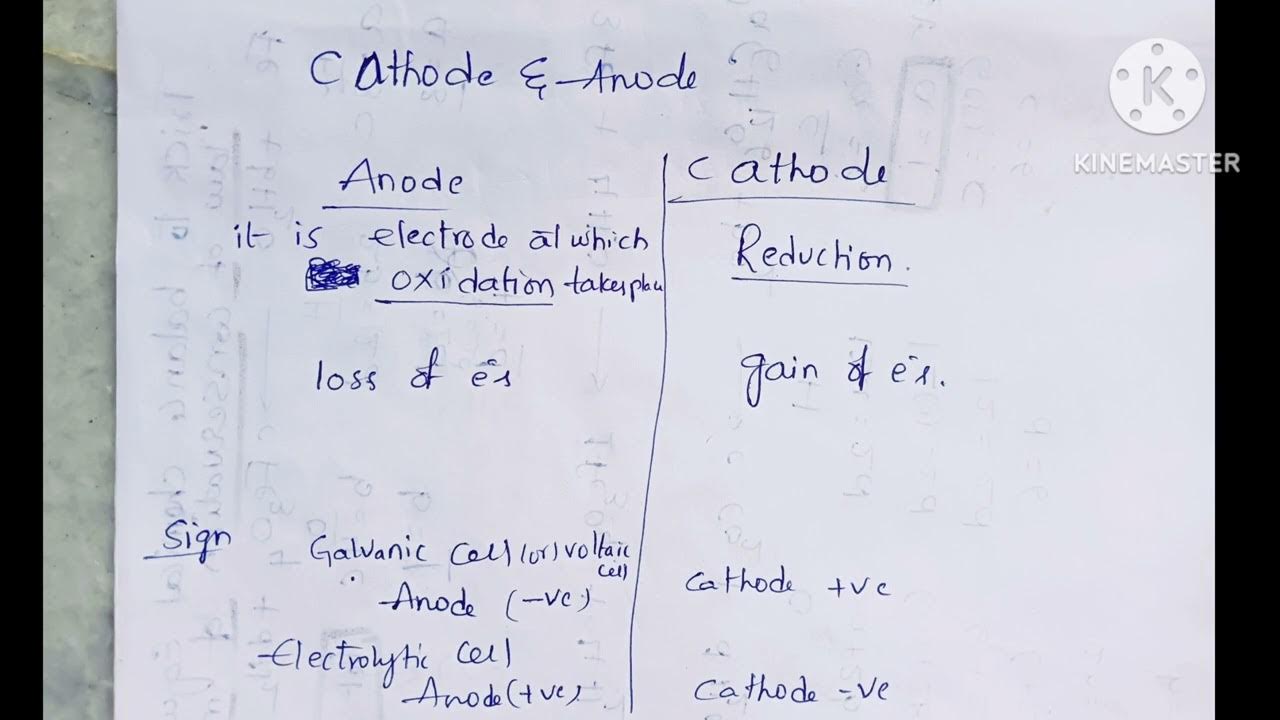 Cathode & Anode
K
KINEMASTER
Anode
it is electrode at which
oxidation takes place
loss of e⁻s
Cathode
Reduction.
gain of e⁻s.
Sign
Galvanic cell (or) voltaic
cell
Anode (-ve)
Cathode +ve
Electrolytic cell
Anode (+ve)
Cathode -ve